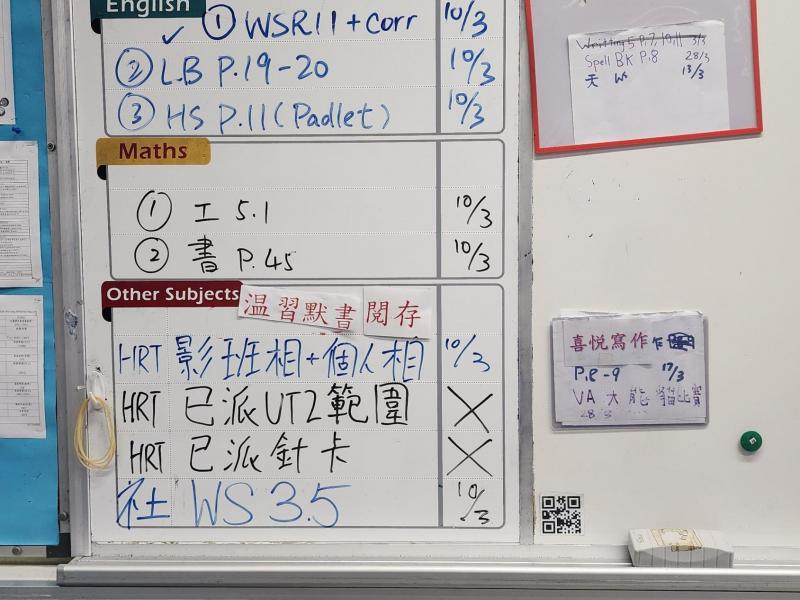 English
✓ ① WSR11 + Corr 10/3
② L.B P.19-20 10/3
③ HS P.11 (Padlet) 10/3
Maths
① 工 5.1 10/3
② 書 P.45 10/3
Other Subjects
温習默書 閱存
HRT 影班相+個人相 10/3
HRT 已派UT2範圍 X
HRT 已派針卡 X
社 WS 3.5 10/3
Writing 5 P.7, 10, 11 3/3
Spell BK P.8 28/3
天 W 13/3
喜悦寫作
P.8-9 17/3
VA 大能貓比賽
28/3